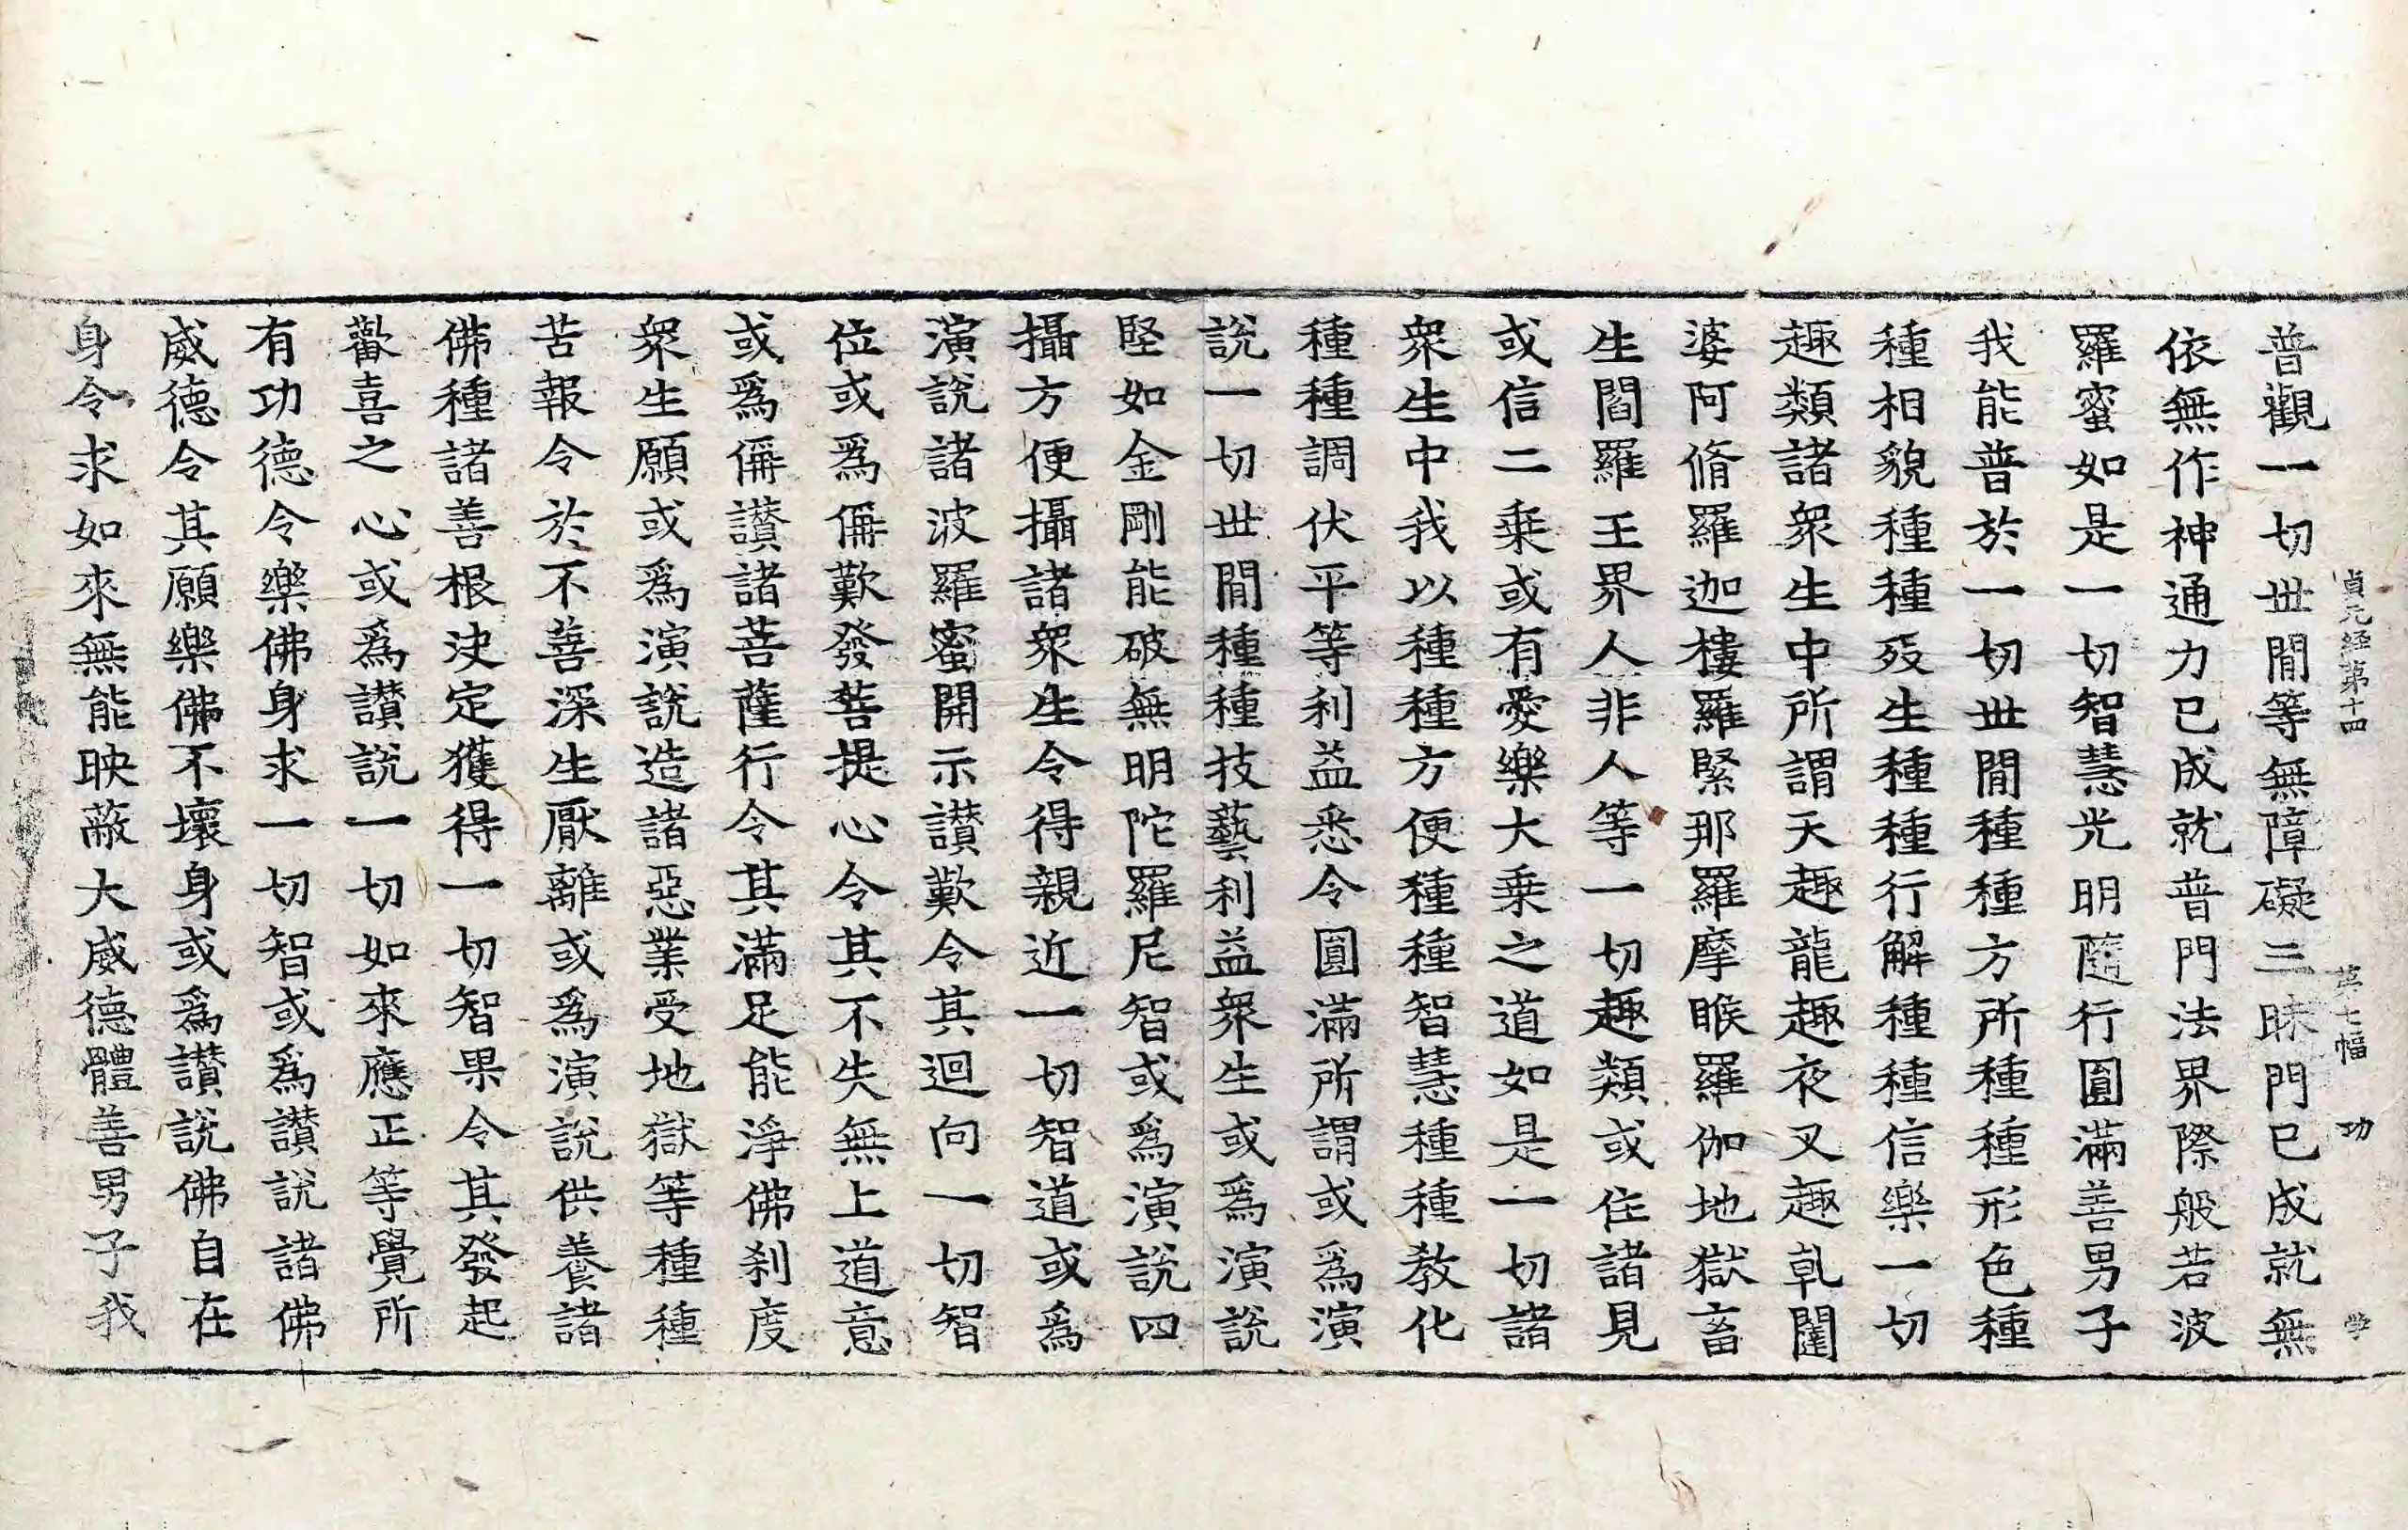 貞元経苐十四 苐七幅 功 学
普觀一切世間等無障礙三昧門已成就無
依無作神通力已成就普門法界際般若波
羅蜜如是一切智慧光明隨行圓滿善男子
我能普於一切世間種種方所種種形色種
種相貌種種殁生種種行解種種信樂一切
趣類諸衆生中所謂天趣龍趣夜叉趣乹闥
婆阿脩羅迦樓羅緊那羅摩睺羅伽地獄畜
生閻羅王界人非人等一切趣類或住諸見
或信二乗或有愛樂大乗之道如是一切諸
衆生中我以種種方便種種智慧種種教化
種種調伏平等利益悉令圓滿所謂或爲演
說一切世間種種技藝利益衆生或爲演說
堅如金剛能破無明陀羅尼智或爲演說四
攝方便攝諸衆生令得親近一切智道或爲
演說諸波羅蜜開示讃歎令其迴向一切智
位或爲偁歎發菩提心令其不失無上道意
或爲偁讃諸菩薩行令其滿足能淨佛刹度
衆生願或爲演說造諸惡業受地獄等種種
苦報令於不善深生厭離或爲演說供養諸
佛種諸善根决定獲得一切智果令其發起
歡喜之心或爲讃說一切如來應正等覺所
有功德令樂佛身求一切智或爲讃說諸佛
威德令其願樂佛不壞身或爲讃說佛自在
身令求如來無能映蔽大威德體善男子我